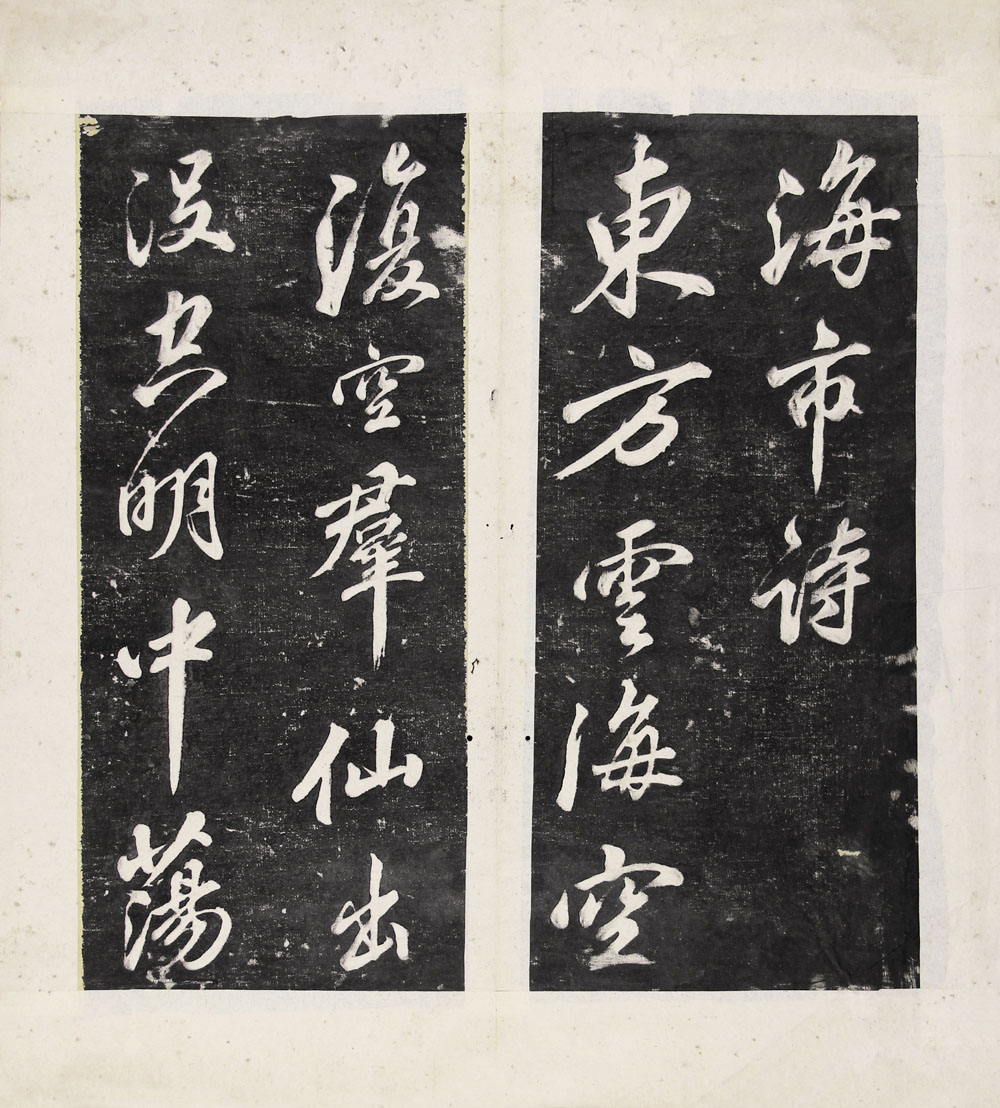 海市詩
東方雲海空
復空羣仙出
没空明中蕩